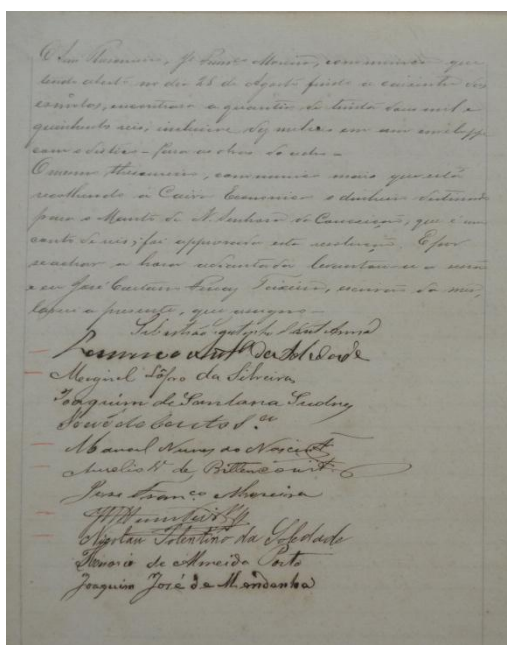 O Snr Thesoureiro, Je Franco Moreira, communicou que
tendo aberto no dia 28 de Agosto findo a caixinha das
esmolas, encontrara a quantia de trinta dous mil e
quinhentos reis, inclusive dez mil reis em um enveloppe
com o distico - Para as obras do
O mesmo Thesoureiro, communicou mais que está
recolhendo á Caixa Economica o dinheiro destinado
para o Manto de N. Senhora da Conceição, que é um
conto de reis; foi approvada esta resolução. E por
se achar a hora adiantada levantou-se a sessão
e eu José Caetano Teixeira, escrivão da mes,
lavrei a presente, que assigno.
Sebastião Sant'Anna
da Soledade
Miguel Lopes da Silveira
Joaquim de Santana
José dos Santos Sa
Manoel Nunes do Nascimto
Aurelio Vo de Bittencourt
Jose Franco Moreira
Nigolau Tolentino da Soledade
Honorio de Almeida Porto
Joaquim José de Mendanha